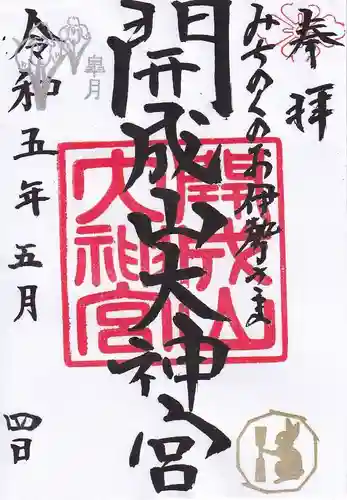 奉拝
みちのくのお伊勢さま
開成山大神宮
開成山
大神宮
皐月
令和五年五月
四日